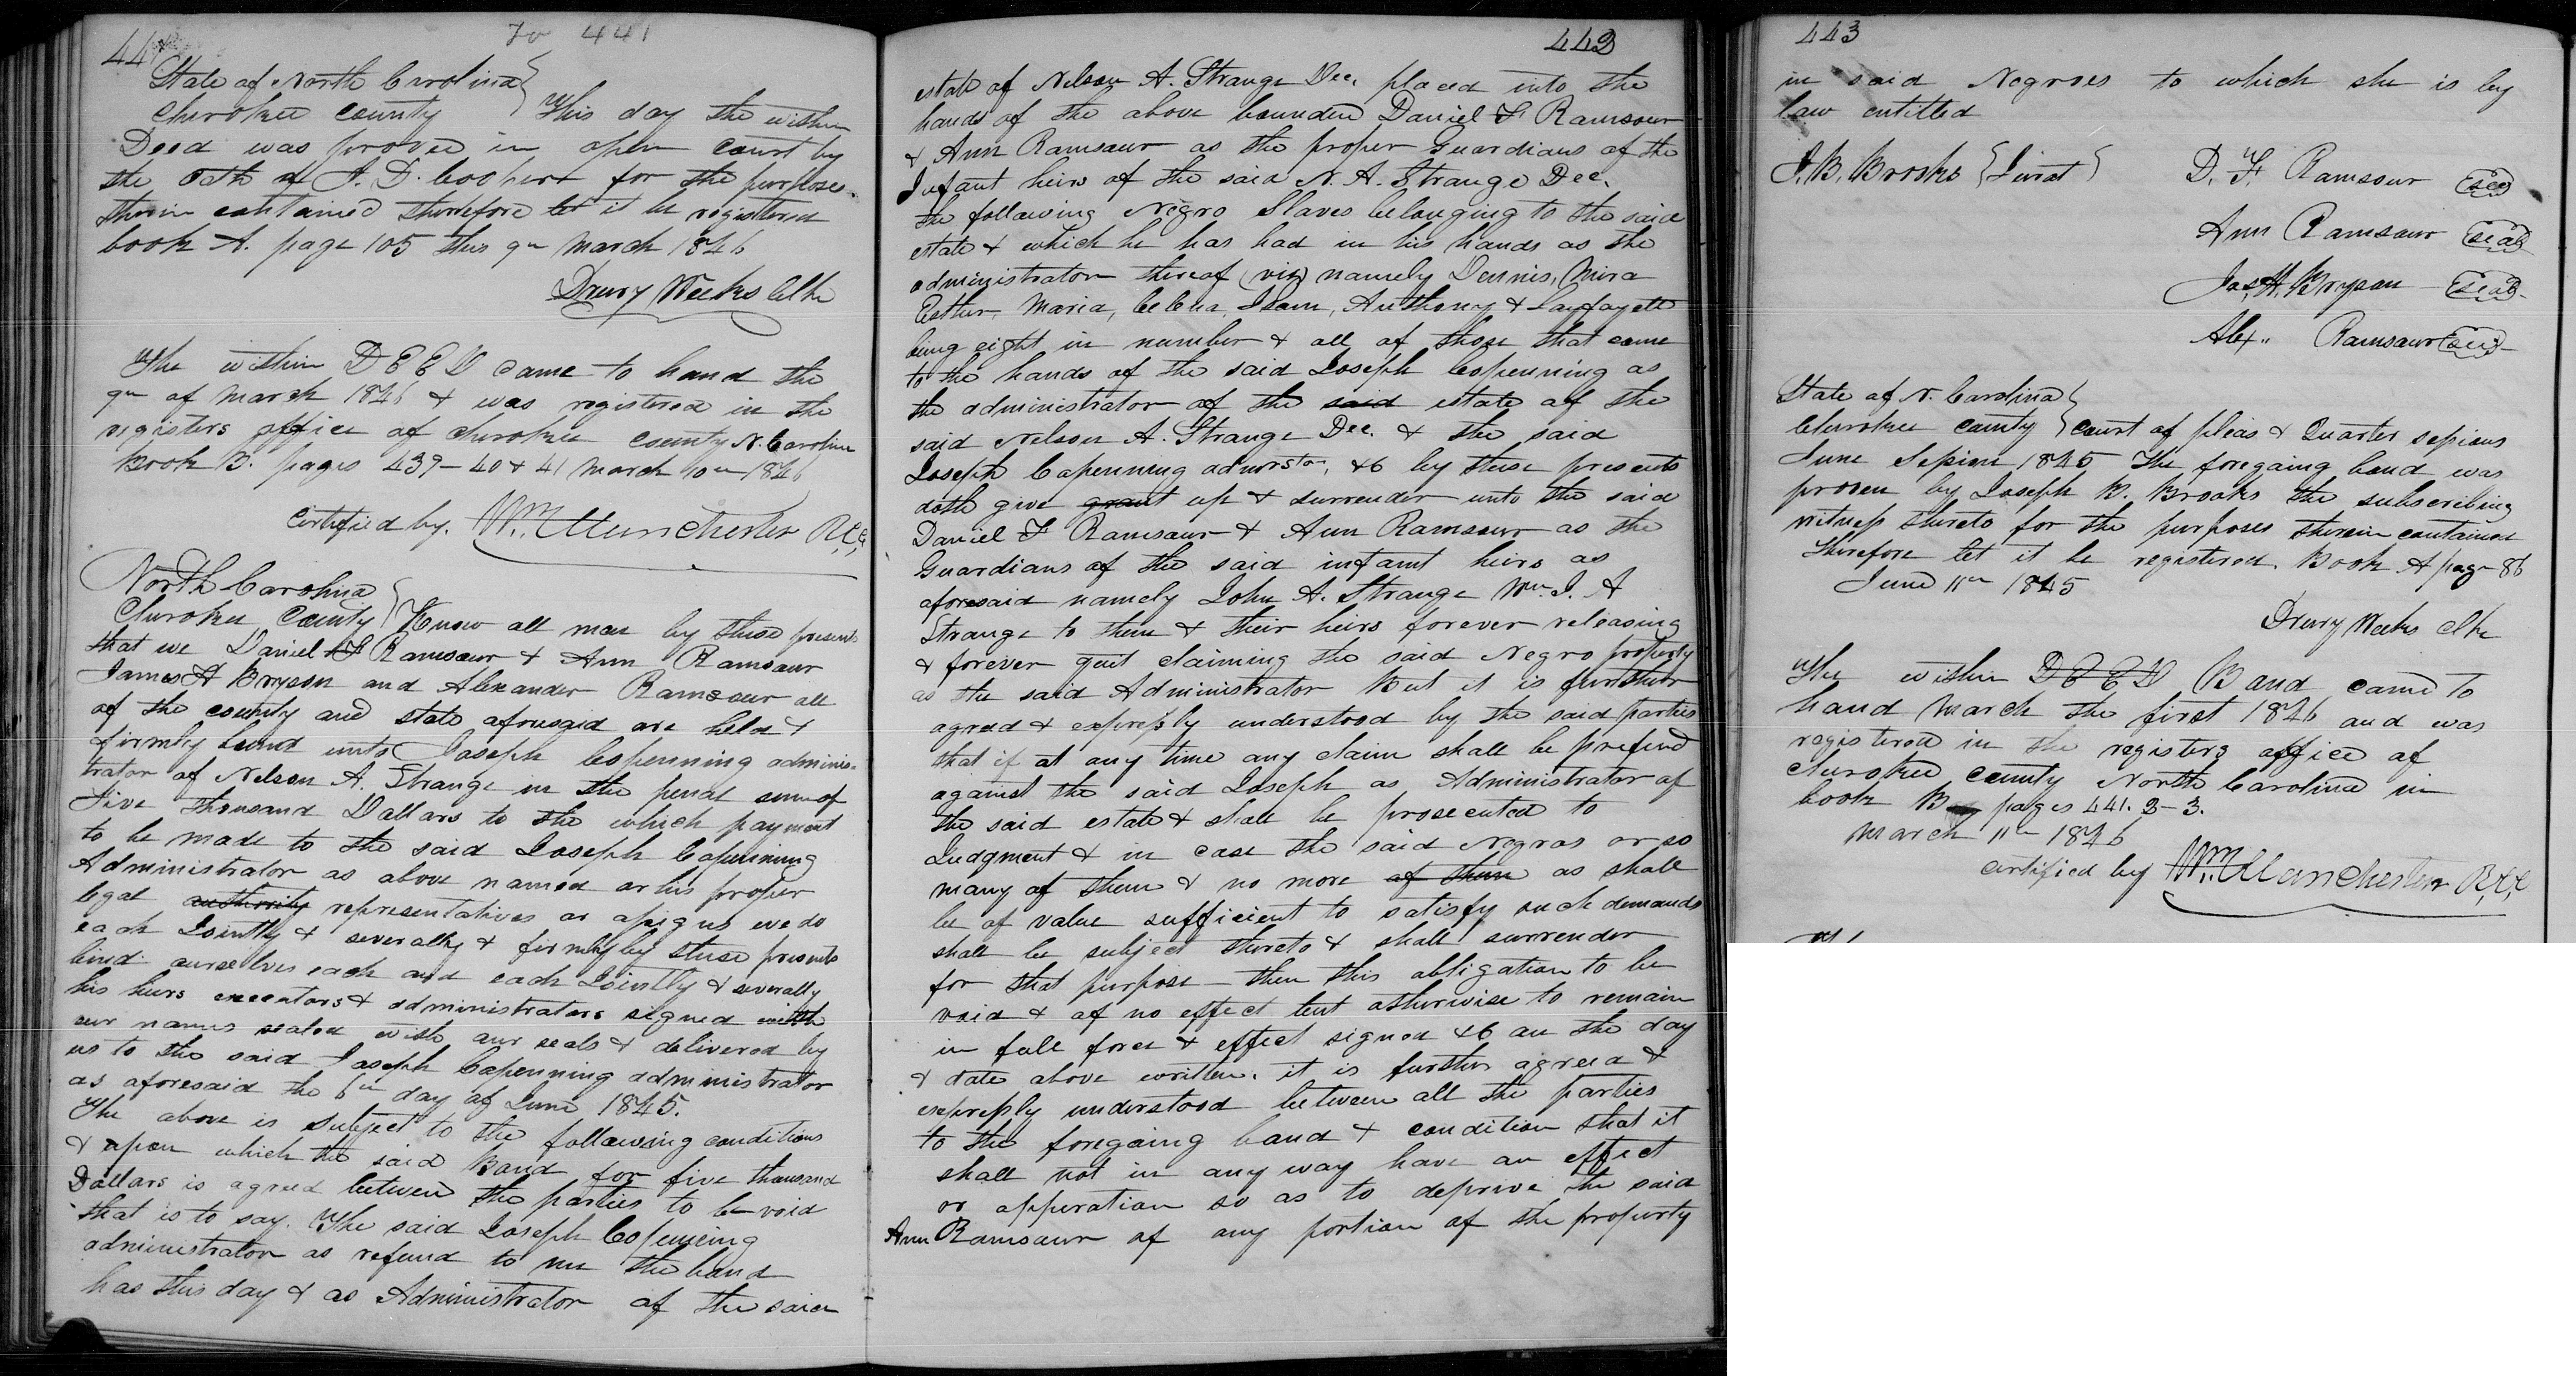 44
To 441
State of North Carolina
Cherokee County } This day the within
Deed was proved in open court by
the oath of J. D. Coopert for the purposes
therein contained therefore let it be registered
book A. page 105 this 9th March 1846
Drury Weeks Clk
The within DEED came to hand the
9th of March 1846 & was registered in the
registers office of Cherokee County N. Carolina
Book B. pages 439-40 & 41 March 10th 1846
Certified by. Wm. Manchester R.C.C.
North Carolina
Cherokee County } Know all men by these presents
that we Daniel F Ramsour & Ann Ramsour
James H Bryson and Alexander Ramsour all
of the county and state aforesaid are held &
firmly bound unto Joseph Copenning adminis-
trator of Nelson A. Strange in the penal sum of
Five thousand Dollars to the which payment
to be made to the said Joseph Copenning
Administrator as above named or his proper
legal authority representatives or assigns we do
each Jointly & severally & firmly by these presents
bind ourselves each and each Jointly & severally
his heirs executors & administrators signed with
our names sealed with our seals & delivered by
us to the said Joseph Copenning administrator
as aforesaid the 6th day of June 1845.
The above is subject to the following conditions
& upon which the said Bond for five thousand
Dollars is agreed between the parties to be void
that is to say. The said Joseph Copenning
administrator as refund to me the bond
has this day & as Administrator of the said
442
estate of Nelson A. Strange Dec. placed into the
hands of the above bounden Daniel F Ramsour
& Ann Ramsour as the proper Guardians of the
Infant heirs of the said N. A. Strange Dec.
the following Negro Slaves belonging to the said
estate & which he has had in his hands as the
administrator thereof (viz) namely Dennis, Mira
Esther, Maria, Celena, Isam, Anthony & Layfayett
being eight in number & all of those that came
to the hands of the said Joseph Copenning as
the administrator of the said estate of the
said Nelson A. Strange Dec. & the said
Joseph Copenning admrstr, &c by these presents
doth give grant up & surrender unto the said
Daniel F Ramsour & Ann Ramsour as the
Guardians of the said infant heirs as
aforesaid namely John A. Strange Wm. J. A
Strange to them & their heirs forever releasing
& forever quit claiming the said Negro property
as the said Administrator But it is further
agreed & expressly understood by the said parties
that if at any time any claim shall be prefered
against the said Joseph as Administrator of
the said estate & shall be prosecuted to
Judgment & in case the said Negros or so
many of them & no more of them as shall
be of value sufficient to satisfy such demands
shall be subject thereto & shall surrender
for that purpose - then this obligation to be
void & of no effect but otherwise to remain
in full force & effect signed &c on the day
& date above written. it is further agreed &
expressly understood between all the parties
to the foregoing bond & condition that it
shall not in any way have an effect
or opperation so as to deprive the said
Ann Ramsour of any portion of the property
443
in said Negroes to which she is by
law entitled
J. B. Brooks { Jurat } D. F. Ramsour seal
Ann Ramsour seal
Jas. H. Bryson seal
Alex" Ramsour seal
State of N. Carolina
Cherokee County } Court of pleas & Quarter sessions
June Session 1845 The foregoing bond was
proven by Joseph B. Brooks the subscribing
witness thereto for the purposes therein contained
therefore let it be registered. Book A page 86
June 11th 1845
Drury Weeks Clk
The within DEED Bond came to
hand March the first 1846 and was
registered in the registers office of
Cherokee County North Carolina in
book B pages 441. 2-3.
March 11th 1846
certified by Wm. Manchester R.C.C.